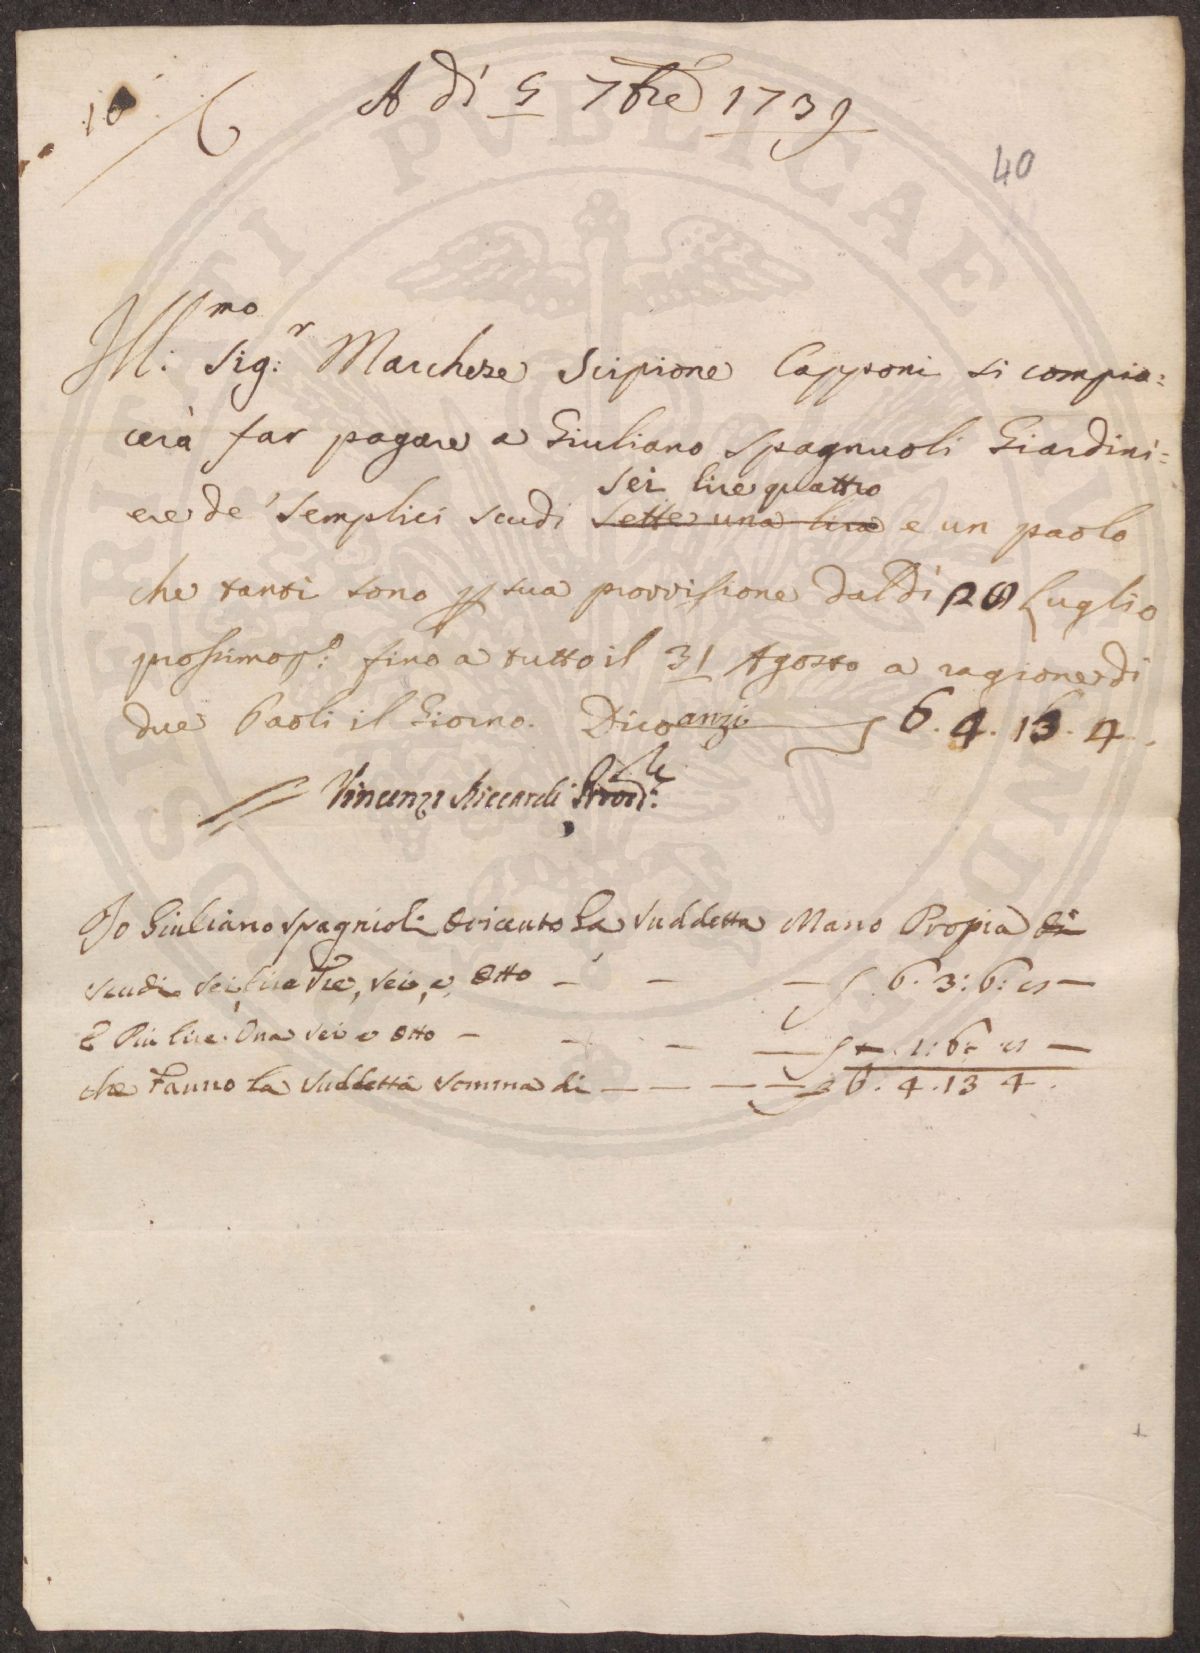 10
A dì 5 7bre 1739
40
Ill:mo Sig:r Marchese Scipione Capponi si compia=
cerà far pagare a Giuliano Spagnuoli Giardini=
sei lire quattro
ere de' Semplici scudi sette una lira e un paolo
che tanti sono p sua provvisione dal dì 20 Luglio
prossimo p:o fino a tutto il 31 Agosto a ragione di
due Paoli il Giorno. Dico anzi 6. 4. 13. 4.
Vincenzo Riccardi
Io Giuliano Spagnioli oricauto la suddetta Mano Propia di
scudi sei, lire tre, sei, e otto — — — 6. 3: 6: 8 —
E Piu lire Una sei e otto — — — — 1: 6: 8 —
che Fanno la suddetta somma di — — — — 6. 4. 13 4.